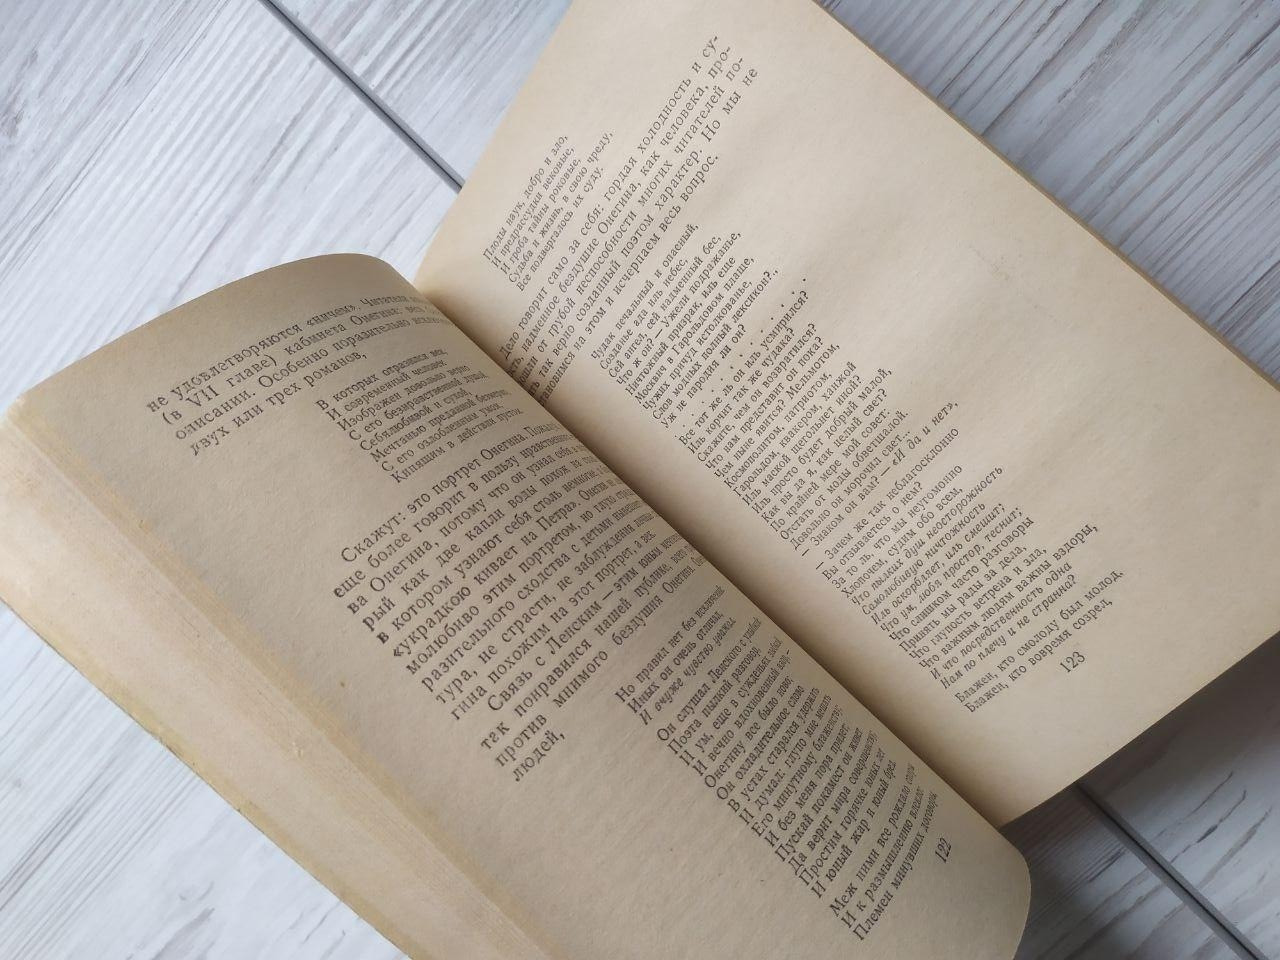 не удовлетворяются «ничем». Читатели
(в VII главе) кабинета Онегина: весь
описании. Особенно поразительно исключение
двух или трех романов,
В которых отразился век,
И современный человек
Изображен довольно верно
С его безнравственной душой,
Себялюбивой и сухой,
Мечтанью преданной безмерно,
С его озлобленным умом
Кипящим в действии пустом.
Скажут: это портрет Онегина. Пожалуй
еще более говорит в пользу нравственного
ва Онегина, потому что он узнал себя в
рый как две капли воды похож на
в котором узнают себя столь немногие, а
«украдкою кивает на Петра». Онегин не
молюбиво этим портретом, но глухо страдал
разительного сходства с детьми нынешнего
тура, не страсти, не заблуждения личные
гина похожим на этот портрет, а век.
Связь с Ленским — этим юным мечтателем
так понравился нашей публике, всего
против мнимого бездушия Онегина.
людей,
Но правил нет без исключений:
Иных он очень отличал,
И вчуже чувство уважал.
Он слушал Ленского с улыбкой.
Поэта пылкий разговор,
И ум, еще в сужденьях зыбкой,
И вечно вдохновенный взор —
Онегину все было ново;
Он охладительное слово
В устах старался удержать
И думал: глупо мне мешать
Его минутному блаженству;
И без меня пора придет;
Пускай покамест он живет
Да верит мира совершенству;
Простим горячке юных лет
И юный жар и юный бред.
Меж ними все рождало споры
И к размышлению влекло:
Племен минувших договоры,
122
Плоды наук, добро и зло,
И предрассудки вековые,
И гроба тайны роковые,
Судьба и жизнь, в свою чреду,
Все подвергалось их суду.
Дело говорит само за себя: гордая холодность и су-
надменное бездушие Онегина, как человека, про-
от грубой неспособности многих читателей по-
так верно созданный поэтом характер. Но мы не
на этом и исчерпаем весь вопрос.
Чудак печальный и опасный,
Созданье ада иль небес,
Сей ангел, сей надменный бес,
Что ж он? — Ужели подражанье,
Ничтожный призрак, иль еще
Москвич в Гарольдовом плаще,
Чужих причуд истолкованье,
Слов модных полный лексикон?..
Уж не пародия ли он?
. . . . . . . . . . . .
Все тот же ль он иль усмирился?
Иль корчит так же чудака?
Скажите, чем он возвратился?
Что нам представит он пока?
Чем ныне явится? Мельмотом,
Космополитом, патриотом,
Гарольдом, квакером, ханжой
Иль маской щегольнет иной?
Иль просто будет добрый малой,
Как вы да я, как целый свет?
По крайней мере мой совет:
Отстать от моды обветшалой.
Довольно он морочил свет...
— Знаком он вам? — «И да и нет»,
— Зачем же так неблагосклонно
Вы отзываетесь о нем?
За то ль, что мы неугомонно
Хлопочем, судим обо всем,
Что пылких душ неосторожность
Самолюбивую ничтожность
Иль оскорбляет, иль смешит;
Что ум, любя простор, теснит;
Что слишком часто разговоры
Принять мы рады за дела,
Что глупость ветрена и зла,
Что важным людям важны вздоры,
И что посредственность одна
Нам по плечу и не странна?
Блажен, кто смолоду был молод,
Блажен, кто вовремя созрел,
123